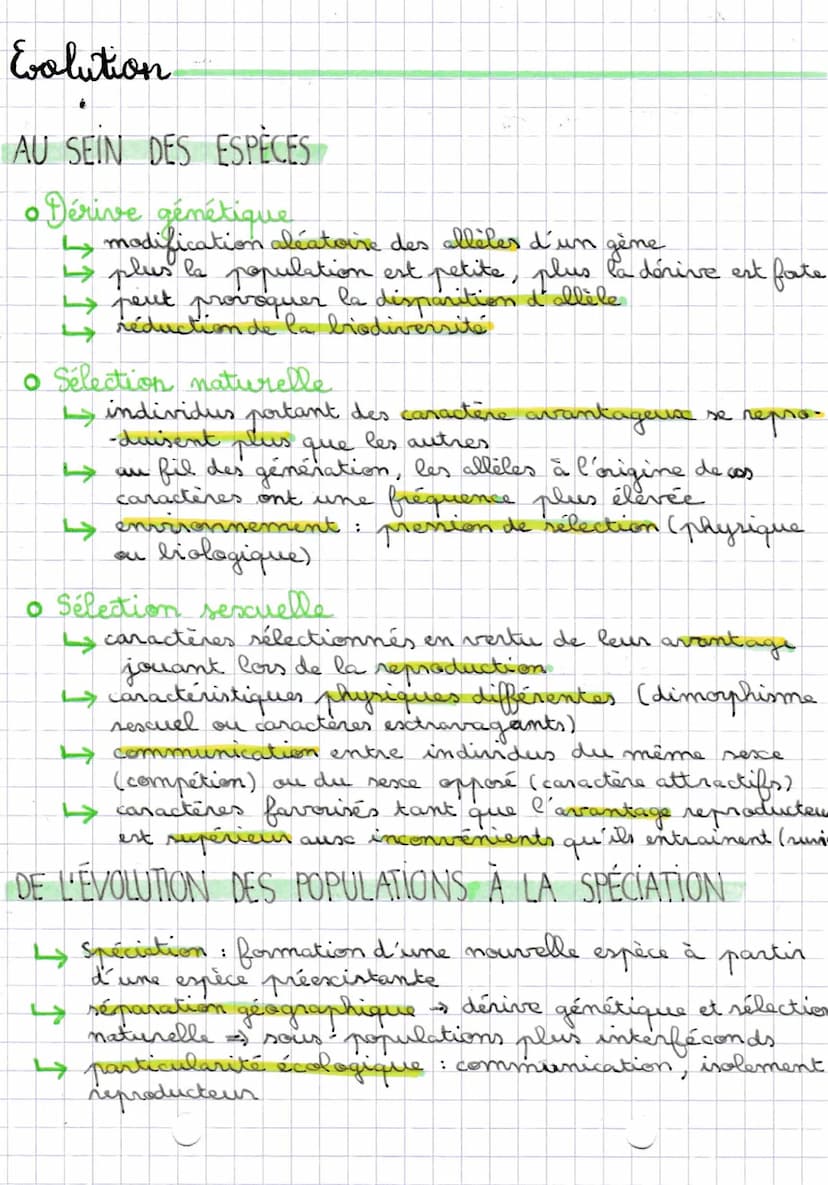 Evolution
AU SEIN DES ESPÈCES
Dérive génétique
↳ modification aléatoire des allèles d'un gène
↳ plus la population est petite, plus la dérive est forte
↳ peut provoquer la disparition d'allèle
↳ réduction de la biodiversité
Sélection naturelle
↳ individus portant des caractère avantageux se repro-
-duisent plus que les autres
↳ au fil des génération, les allèles à l'origine de ces
caractères ont une fréquence plus élevée
↳ environnement : pression de sélection (physique
ou biologique)
Sélection sexuelle
↳ caractères sélectionnés en vertu de leur avantage
jouant lors de la reproduction
↳ caractéristiques physiques différentes (dimorphisme
sexuel ou caractères extravagants)
↳ communication entre individus du même sexe
(compétion) ou du sexe opposé (caractère attractifs)
↳ caractères favorisés tant que l'avantage reproducteu
est supérieur aux inconvénients qu'ils entrainent (survi
DE L'ÉVOLUTION DES POPULATIONS À LA SPÉCIATION
↳ Spéciation : formation d'une nouvelle espèce à partir
d'une espèce préexistante
↳ séparation géographique → dérive génétique et sélection
naturelle ⇒ sous-populations plus interféconds
↳ particularité écologique : communication, isolement
reproducteur